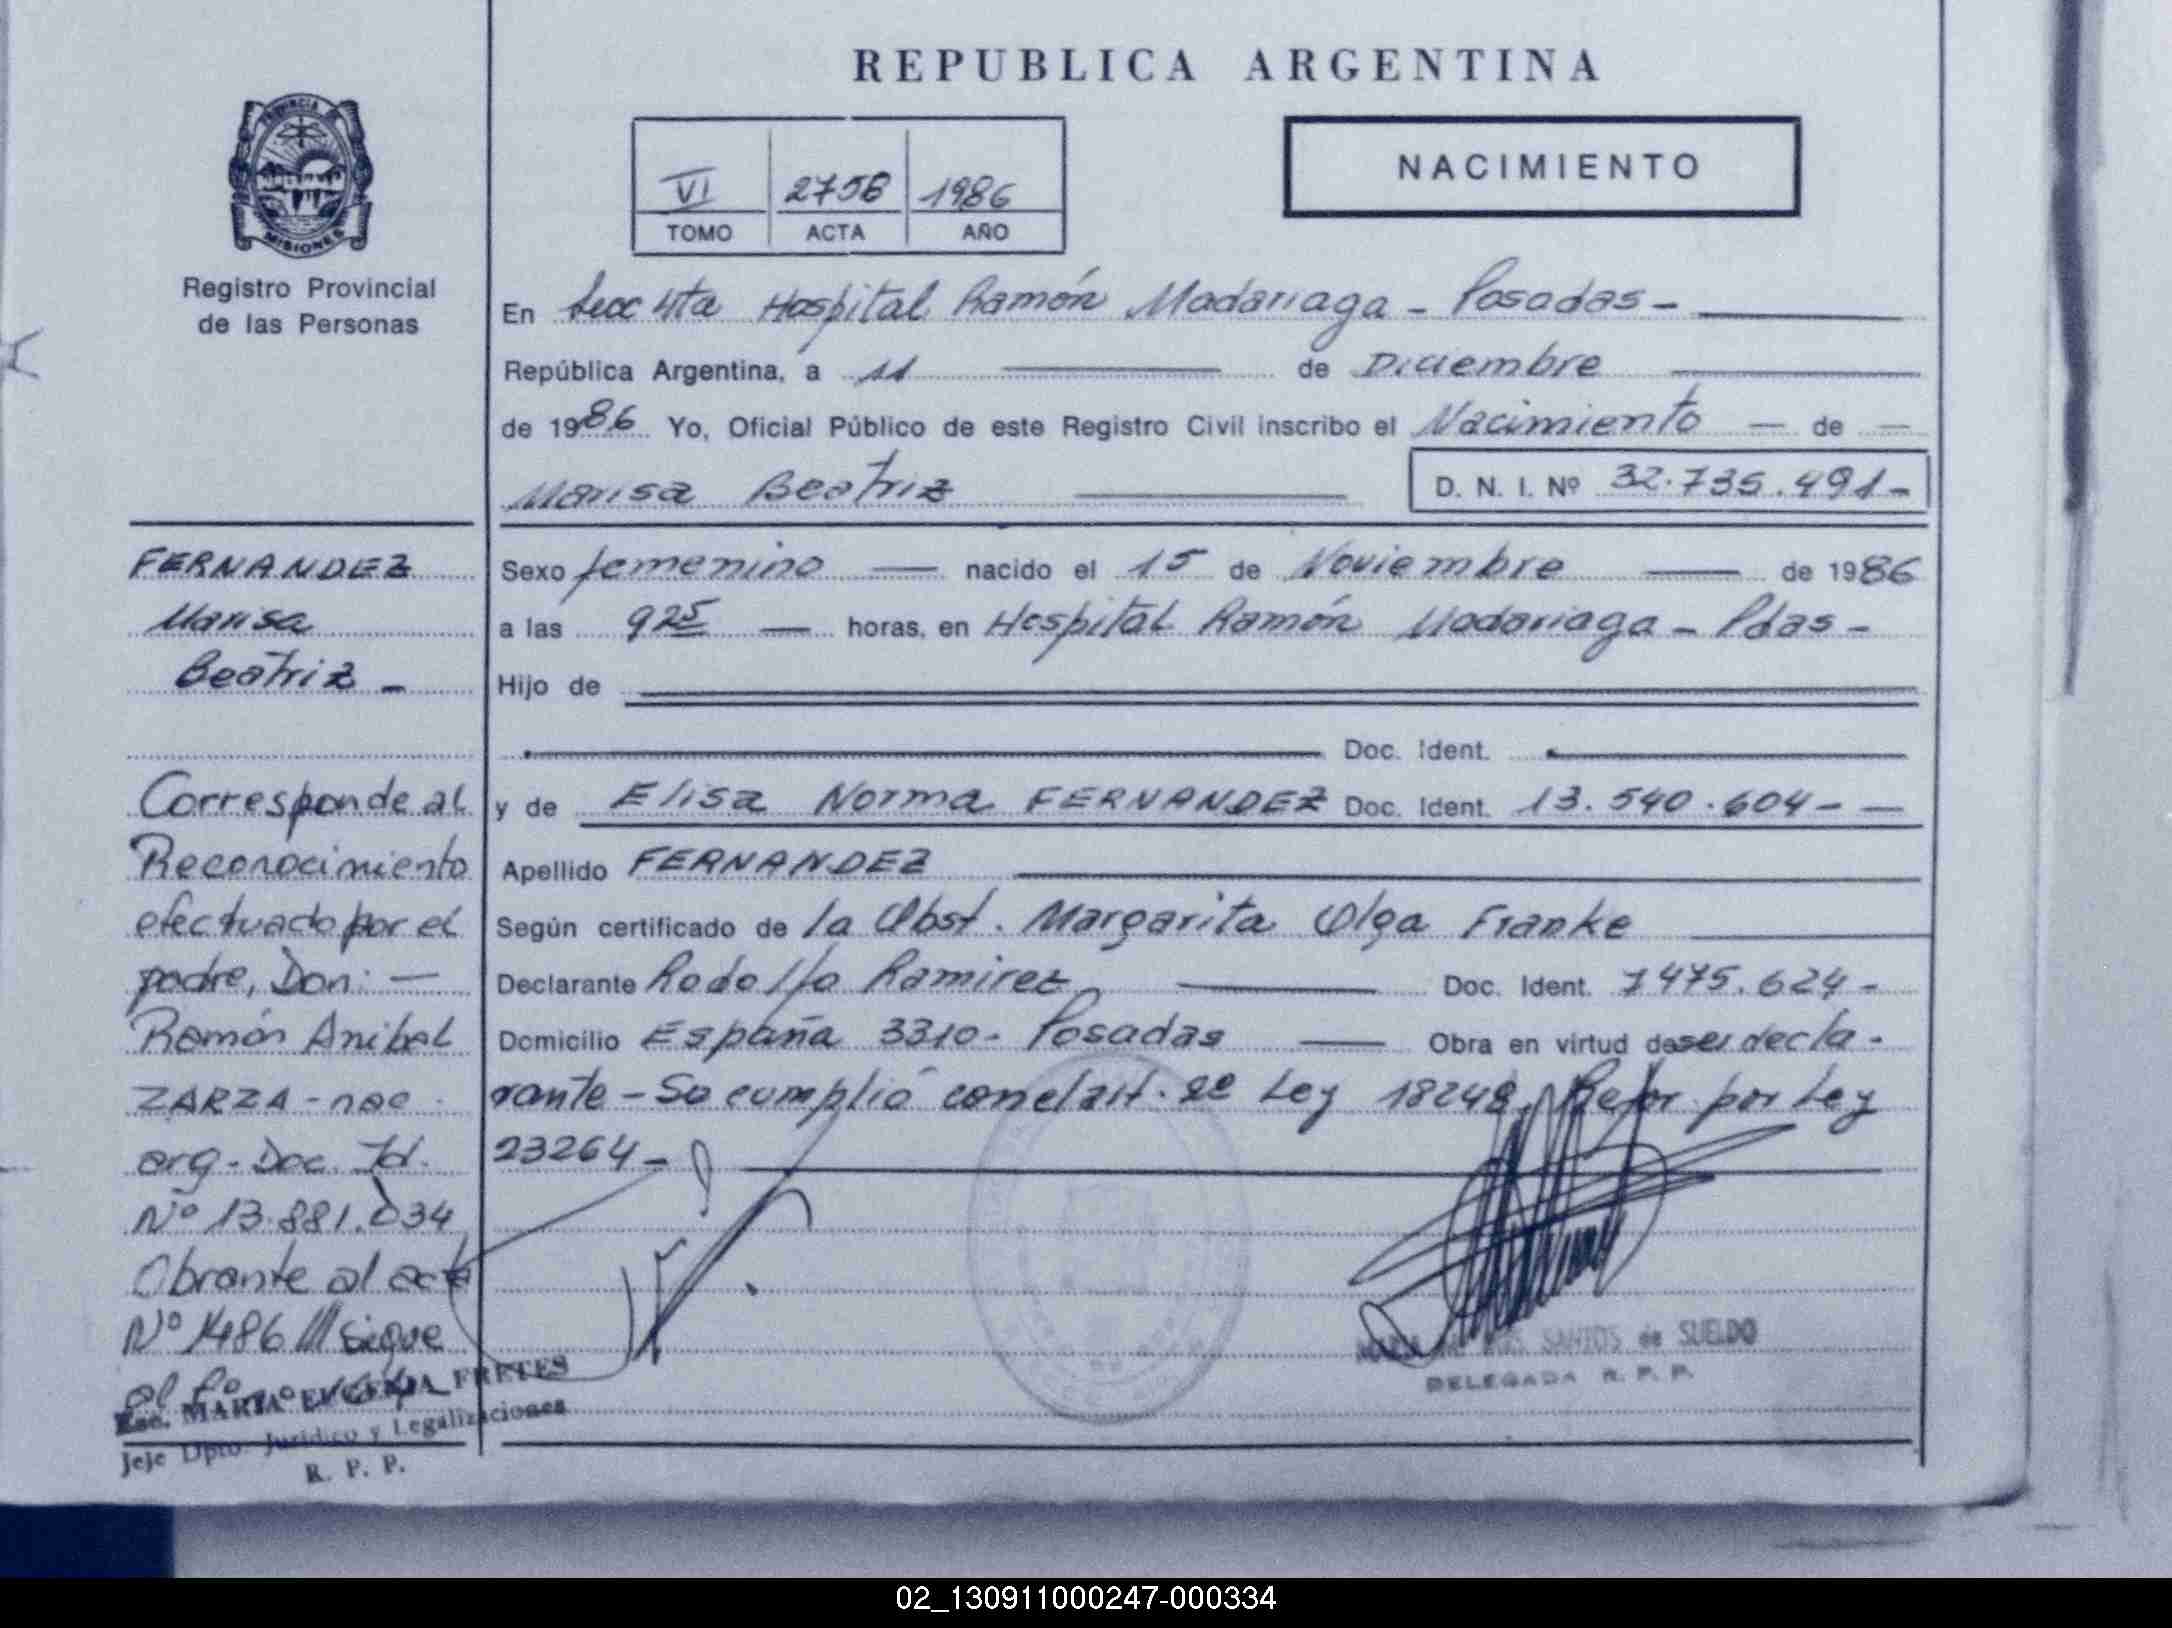 REPUBLICA ARGENTINA
PROVINCIA DE
MISIONES
Registro Provincial
de las Personas
VI 2758 1986
TOMO ACTA AÑO
NACIMIENTO
En Secc 4ta Hospital Ramón Madariaga - Posadas -
República Argentina, a 11 de Diciembre
de 1986 Yo, Oficial Público de este Registro Civil inscribo el Nacimiento - de -
Marisa Beatriz D. N. I. Nº 32.735.491-
FERNANDEZ
Marisa
Beatriz -
Corresponde al
Reconocimiento
efectuado por el
padre, Don: -
Ramón Anibal
ZARZA - nac.
arg. Doc. Id.
Nº 13.881.034
Obrante al acta
Nº 1486 /// sigue
al fº nº
Esc. MARIA EUGENIA FRETES
Jefe Dpto. Jurídico y Legalizaciones
R. P. P.
Sexo femenino - nacido el 15 de Noviembre - de 1986
a las 9 25 - horas, en Hospital Ramón Madariaga - Pdas -
Hijo de
Doc. Ident.
y de Elisa Norma FERNANDEZ Doc. Ident. 13.540.604- -
Apellido FERNANDEZ
Según certificado de la Obst. Margarita Olga Franke
Declarante Rodolfo Ramirez Doc. Ident. 7475.624-
Domicilio España 3310- Posadas - Obra en virtud de ser decla-
rante - Se cumplió con el art. 2º Ley 18248 Refor por Ley
23264 -
MARIA SANTOS de SUELDO
DELEGADA R. P. P.
02_130911000247-000334